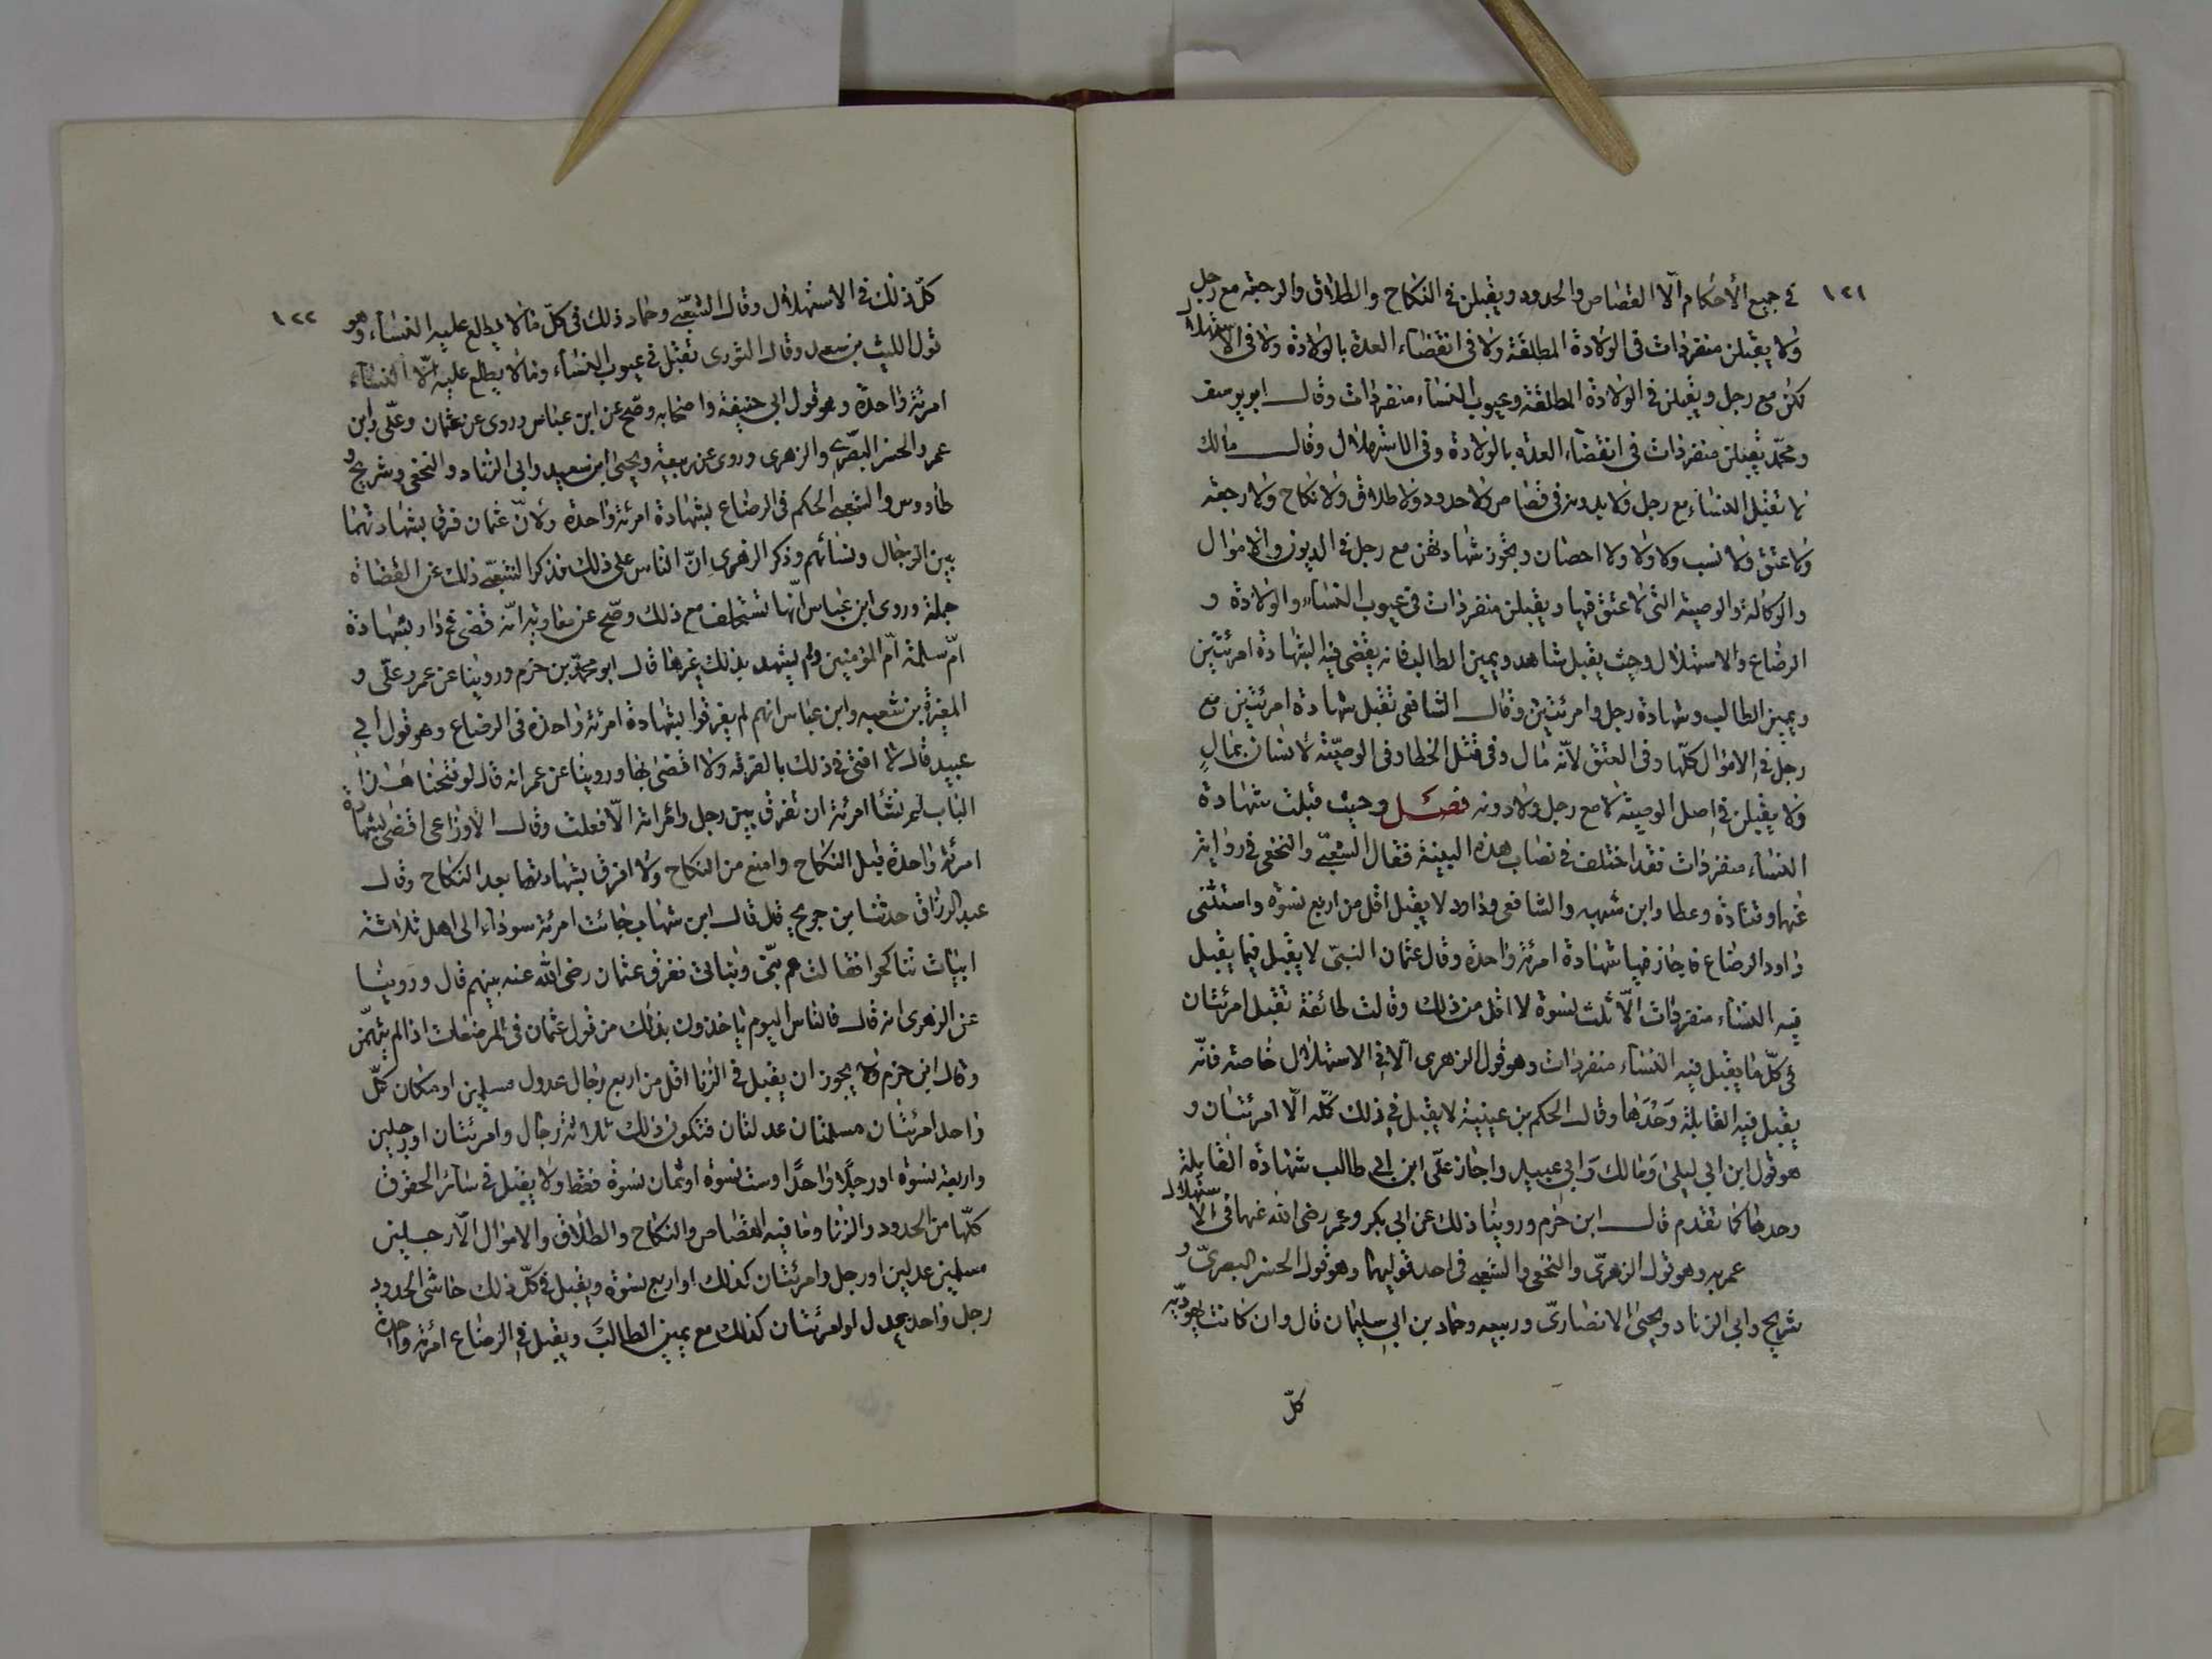 ١٢١
في جميع الأحكام الا القصاص والحدود ويقبلن في النكاح والطلاق والرجعة مع رجل
ولا يقبلن منفردات في الولادة المطلقة ولا في انقضاء العدة بالولادة ولا في الاستهلال
لكن مع رجل ويقبلن في الولادة المطلقة وعيوب النساء منفردات وقال ابو يوسف
ومحمّد يقبلن منفردات في انقضاء العدة بالولادة وفي الاستهلال وقال مالك
لا تقبل النساء مع رجل ولا بدونه في قصاص ولا حدود ولا طلاق ولا نكاح ولا رجعة
ولا عتق ولا نسب ولا ولا ولا احصان ويجوز شهادتهن مع رجل في الديون والاموال
والوكالة والوصية التي لا عتق فيها ويقبلن منفردات في عيوب النساء والولادة و
الرضاع والاستهلال وحيث يقبل شاهد ويمين الطالب فانه يقضى فيه بشهادة امرئتين
ويمين الطالب وشهادة رجل وامرئتين وقال الشافعى تقبل شهادة امرئتين مع
رجل في الاموال كلّها وفي العتق لانّه مال وفي قتل الخطا وفي الوصيّة لانسان بمالٍ
ولا يقبلن في اصل الوصية لا مع رجل ولا دونه فصل وحيث قبلت شهادة
النساء منفردات فقد اختلف في نصاب هذه البينة فقال الشعبّي والنخعى في رواية
عنهما وقتادة وعطا وابن شبهه والشافعى وداود لا يقبل اقل من اربع نسوة واستثنى
داود الرضاع فاجاز فيها شهادة امرئة واحدة وقال عثمان البتّي لا يقبل فيما يقبل
فيه النساء منفردات الّا ثلث نسوة لا اقل من ذلك وقالت طائفة تقبل امرئتان
في كلّ ما يقبل فيه النساء منفردات وهو قول الزهرى الّا في الاستهلال خاصة فانّه
يقبل فيه القابلة وَحْدَها وقال الحكم بن عيينة لا يقبل في ذلك كلّه الّا امرئتان و
هو قول ابن ابي ليلى وَمالك وَابي عبيد واجاز علّى ابن ابي طالب شهادة القابلة
وحدها كما تقدم قال ابن حزم وروينا ذلك عن ابي بكر وعمر رضى الله عنهما في الاستهلال
عمر به وهو قول الزهرىّ والنخعى والشعبي في احد قوليهما وهو قول الحسن البصرىّ و
شريح وابي الزناد ويحيى الانصارىّ وربيعه وحماد بن ابى سليمان قال وان كانت يهوديّة
كلّ
١٢٢
كلّ ذلك في الاستهلال وقال الشعبّي وحماد ذلك في كلّ ما لا يطلع عليه النساء وهو
قول الليث بن سعد وقال الثورى تقبل في عيوب النساء وما لا يطلع عليه الّا النساء
امرئة واحدة وهو قول ابى حنيفة واصحابه وصّح عن ابن عباس وروى عن عثمان وعلّى وابن
عمر والحسن البصرّي والزهرى وروى عن ربيعة ويحيى ابن سعيد وابى الزناد والنخعى وشريح و
طاووس والشعبي الحكم في الرضاع بشهادة امرئة واحدة ولانّ عثمان فرق بشهادتهما
بين الرجال ونسائهم وذكر الزهرى انّ الناس على ذلك فذكر الشعبّي ذلك عن القضاة
جملة وروى ابن عباس انّها تستحلف مع ذلك وصّح عن معاوية انّه قضى في دار بشهادة
امّ سلمة امّ المؤمنين ولم يشهد بذلك غيرها قال ابو محمّد بن حزم وروينا عن عمر وعلّى و
المغيرة بن شعبه وابن عباس انهم لم يفرقوا بشهادة امرئة واحدة في الرضاع وهو قول ابي
عبيد قال لا افتى في ذلك بالفرقة ولا اقضى بها وروينا عن عمر انه قال لو فتحنا هذا
الباب لم تشا امرئة ان تفرق بين رجل وامراته الّا فعلت وقال الأوزاعى اقضى بشهادة
امرئة واحدة قبل النكاح وامنع من النكاح ولا افرق بشهادتها بعد النكاح وقال
عبد الرزاق حدثنا بن جريج قال قال ابن شهاب جائت امرئة سوداء الى اهل ثلاثة
ابيات تناكحوا فقالت هم بنّى وبناتى ففرق عثمان رضى الله عنه بينهم قال وروينا
عن الزهرى انه قال فالناس اليوم ياخذون بذلك من قول عثمان في المرضعات اذا لم يتهمّن
وقال ابن حزم ولا يجوز ان يقبل في الزنا اقل من اربع رجال عدول مسلمين او مكان كلّ
واحد امرئتان مسلمتان عدلتان فتكون ذلك ثلاثة رجال وامرئتان او رجلين
واربعة نسوة او رجلًا واحدًا وست نسوة او ثمان نسوة فقط ولا يقبل في سائر الحقوق
كلّها من الحدود والزنا وما فيه القصاص والنكاح والطلاق والاموال الّا رجلين
مسلمين عدلين او رجل وامرئتان كذلك او اربع نسوة ويقبل في كلّ ذلك حاشى الحدود
رجل واحد عدل او امرئتان كذلك مع يمين الطالب ويقبل في الرضاع امرئة واحدة